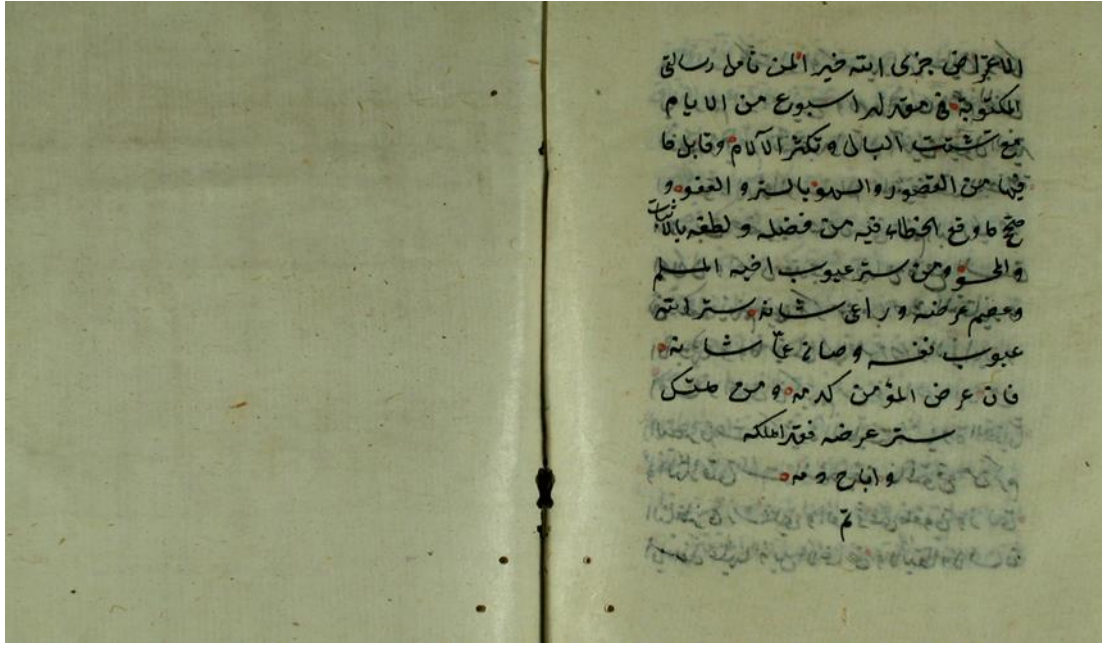 الاعتراض جزى الله خير المن تأمل رسالتى
المكتوبة فى مقدار اسبوع من الايام
مع تشتت البال وتكثر الآلام وقابل ما
فيها من القصور والسهو بالستر والعفو و
صحح ما وقع الخطاء فيه من فضله ولطفه بالاثبات
والمحو ومن ستر عيوب اخيه المسلم
وعصم عرضه وراعى شانه ستر الله
عيوب نفسه وصانه عمّا شانه
فان عرض المؤمن كدمه ومن هتك
ستر عرضه فقد اهلكه
واباح دمه
تم